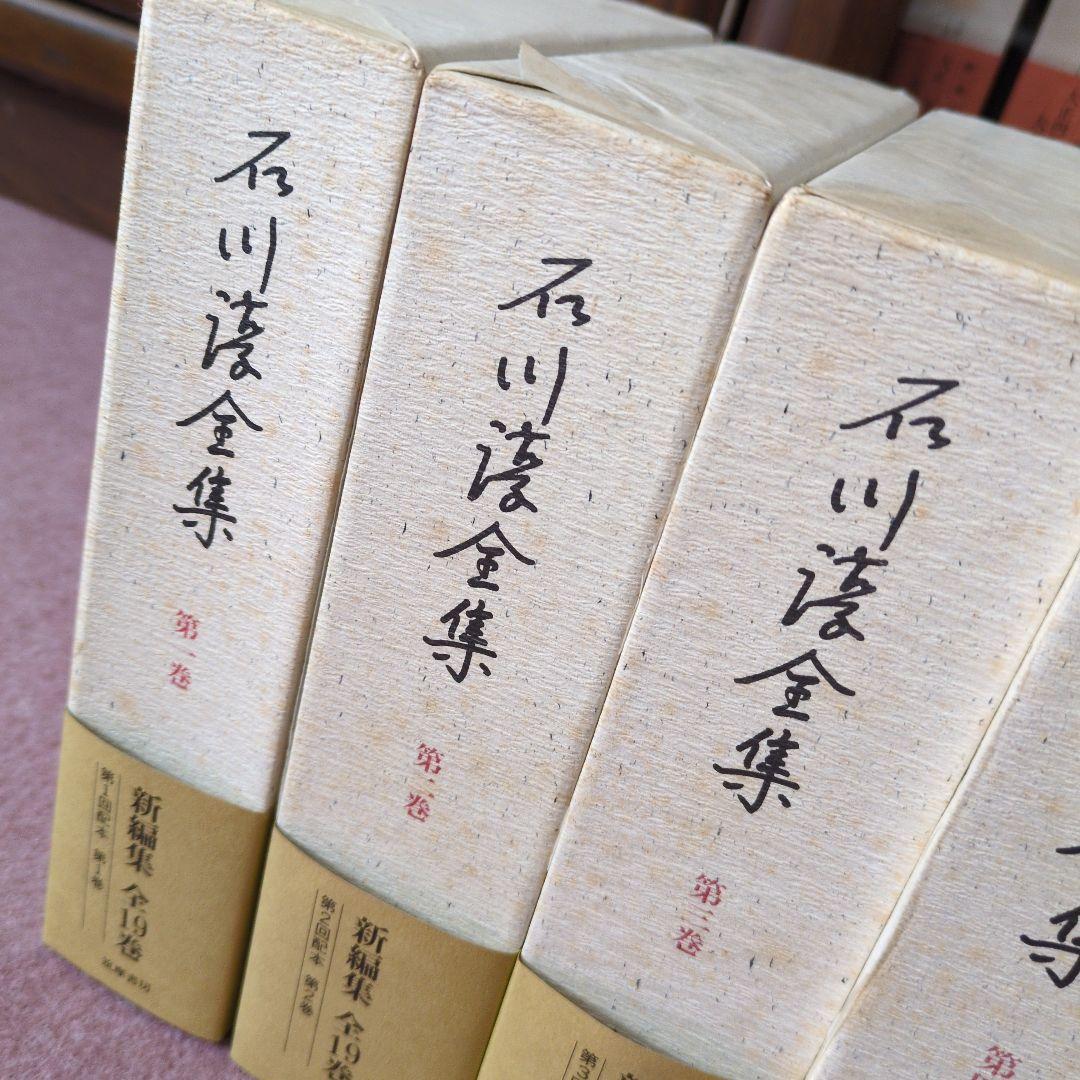 石川淳全集
第一巻
新編集 全19巻
第1回配本 第1巻
筑摩書房
石川淳全集
第二巻
新編集 全19巻
第2回配本 第2巻
石川淳全集
第三巻
新編
第3
集
第